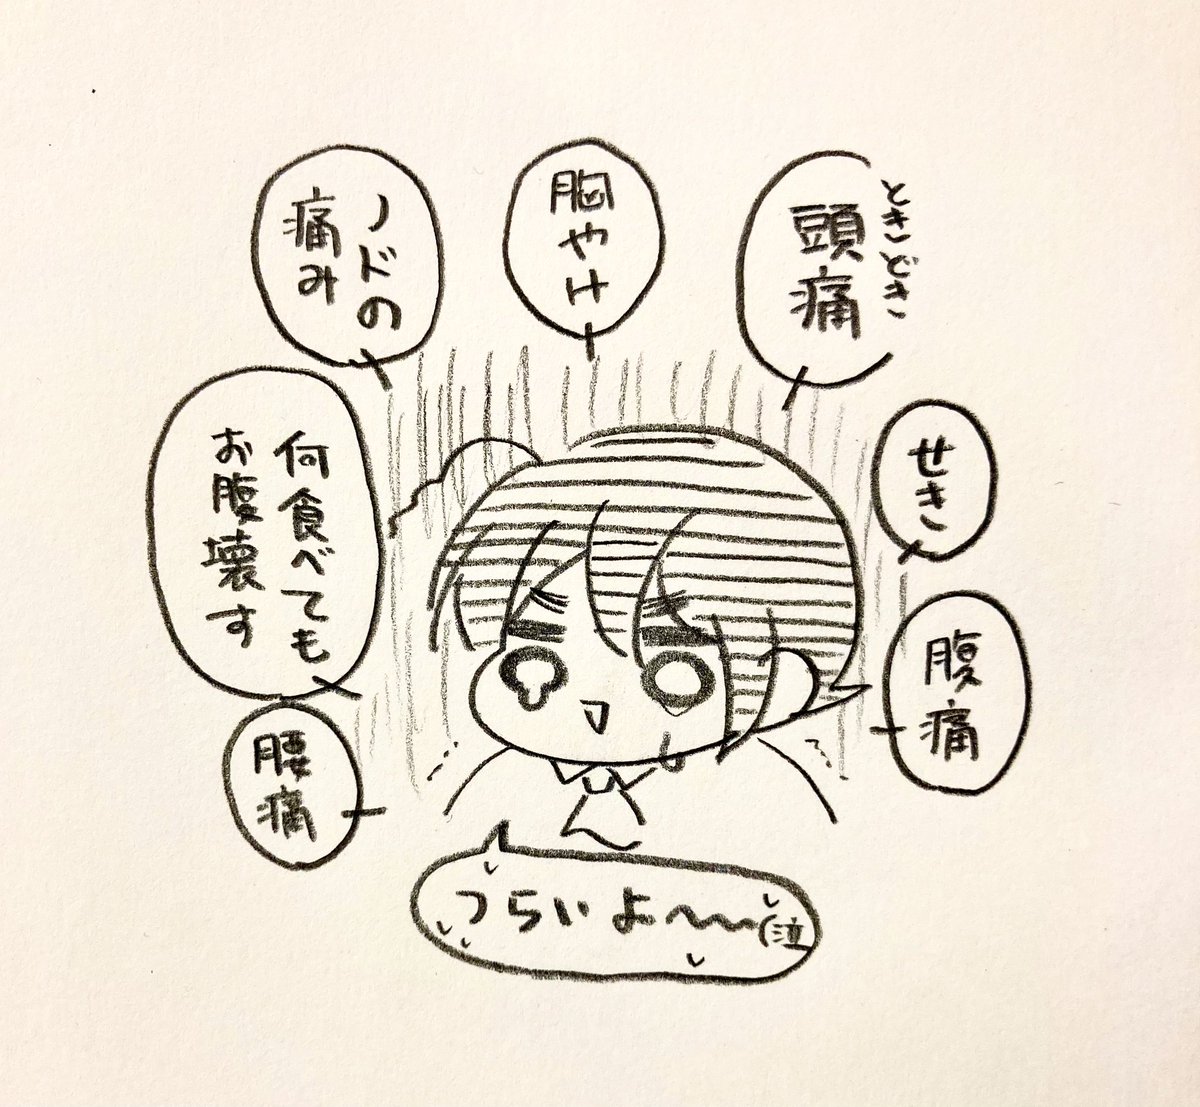 ときどき
頭痛
胸やけ
ノドの
痛み
せき
何食べても
お腹壊す
腹痛
腰痛
つらいよ〜〜〜(泣